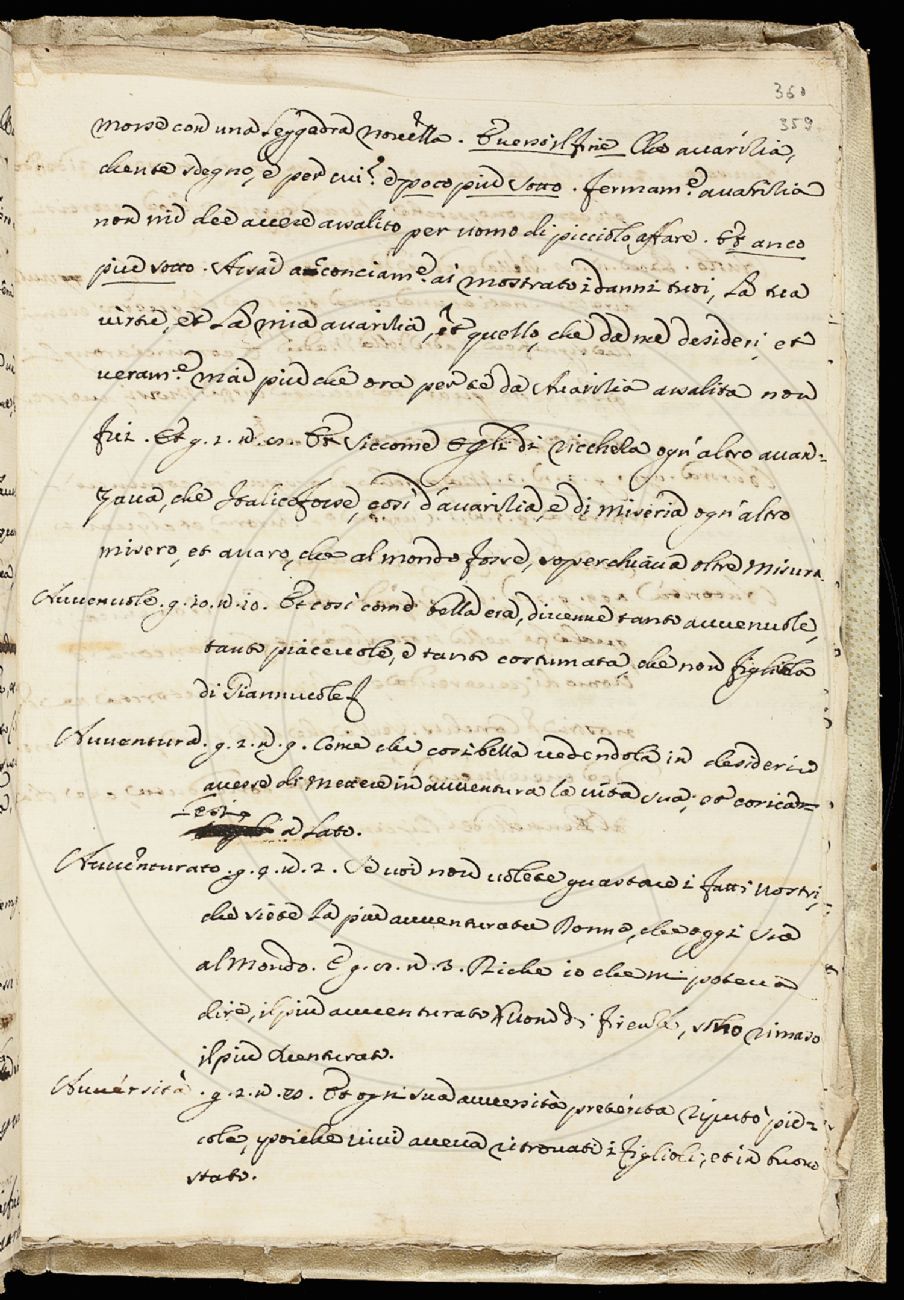 360
359
morse con una leggiadra novella. Et verso il fine Che avaritia,
che ente sdegno, e per cui? e poco piu sotto. fermam.e avaritia
non mi dee avere assalito per uomo di picciolo affare. Et anco
piu sotto. Assai acconciam.e ai mostrato i danni tuoi, la tua
virtu, et la mia avaritia, et quello, che da me desideri, et
veram.e mai piu che ora per te da Avaritia assalita non
fui. Et g. 1. n. 8. Et siccome egli di ricchezza ogn' altro avan=
zava, che Italico fosse, cosi d'avaritia, e di miseria ogn' altro
misero, et avaro, che al mondo fosse, soperchiava oltre misura.
Avvenevole. g. 10. n. 10. Et cosi come bella era, divenne tanto avvenevole,
tanto piacevole, e tanto costumata che non figliuola
di Giannucole
Avventura. g. 2. n. 9. Come che cosi bella vedendola in desiderio
avesse di mettere in avventura la vita sua, et coricar=
lesi a lato.
Avventurato. g. 4. n. 2. Se voi non volete guastare i fatti vostri,
che siete la piu avventurata Donna, che oggi sia
al Mondo. E g. 8. n. 3. Dicke io che mi poteva
dire, il piu avventurato Huom di firenze, sono rimaso
il piu sventurato.
Avversità. g. 2. n. 8. Et ogni sua avversità preterita riputò pic=
cola, poiche vivi aveva ritrovati i figlioli, et in buono
stato.